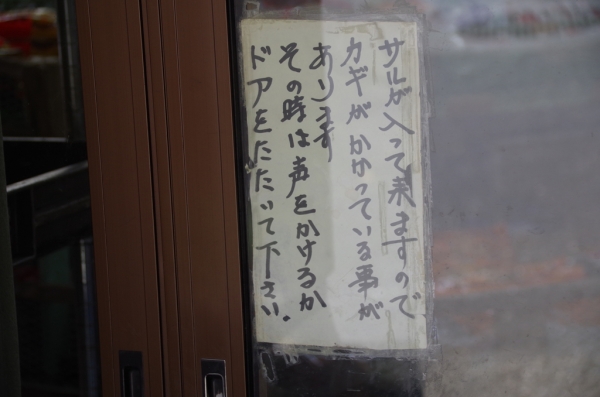 サルが入って来ますので
カギがかかっている事が
あります
その時は声をかけるか
ドアをたたいて下さい.